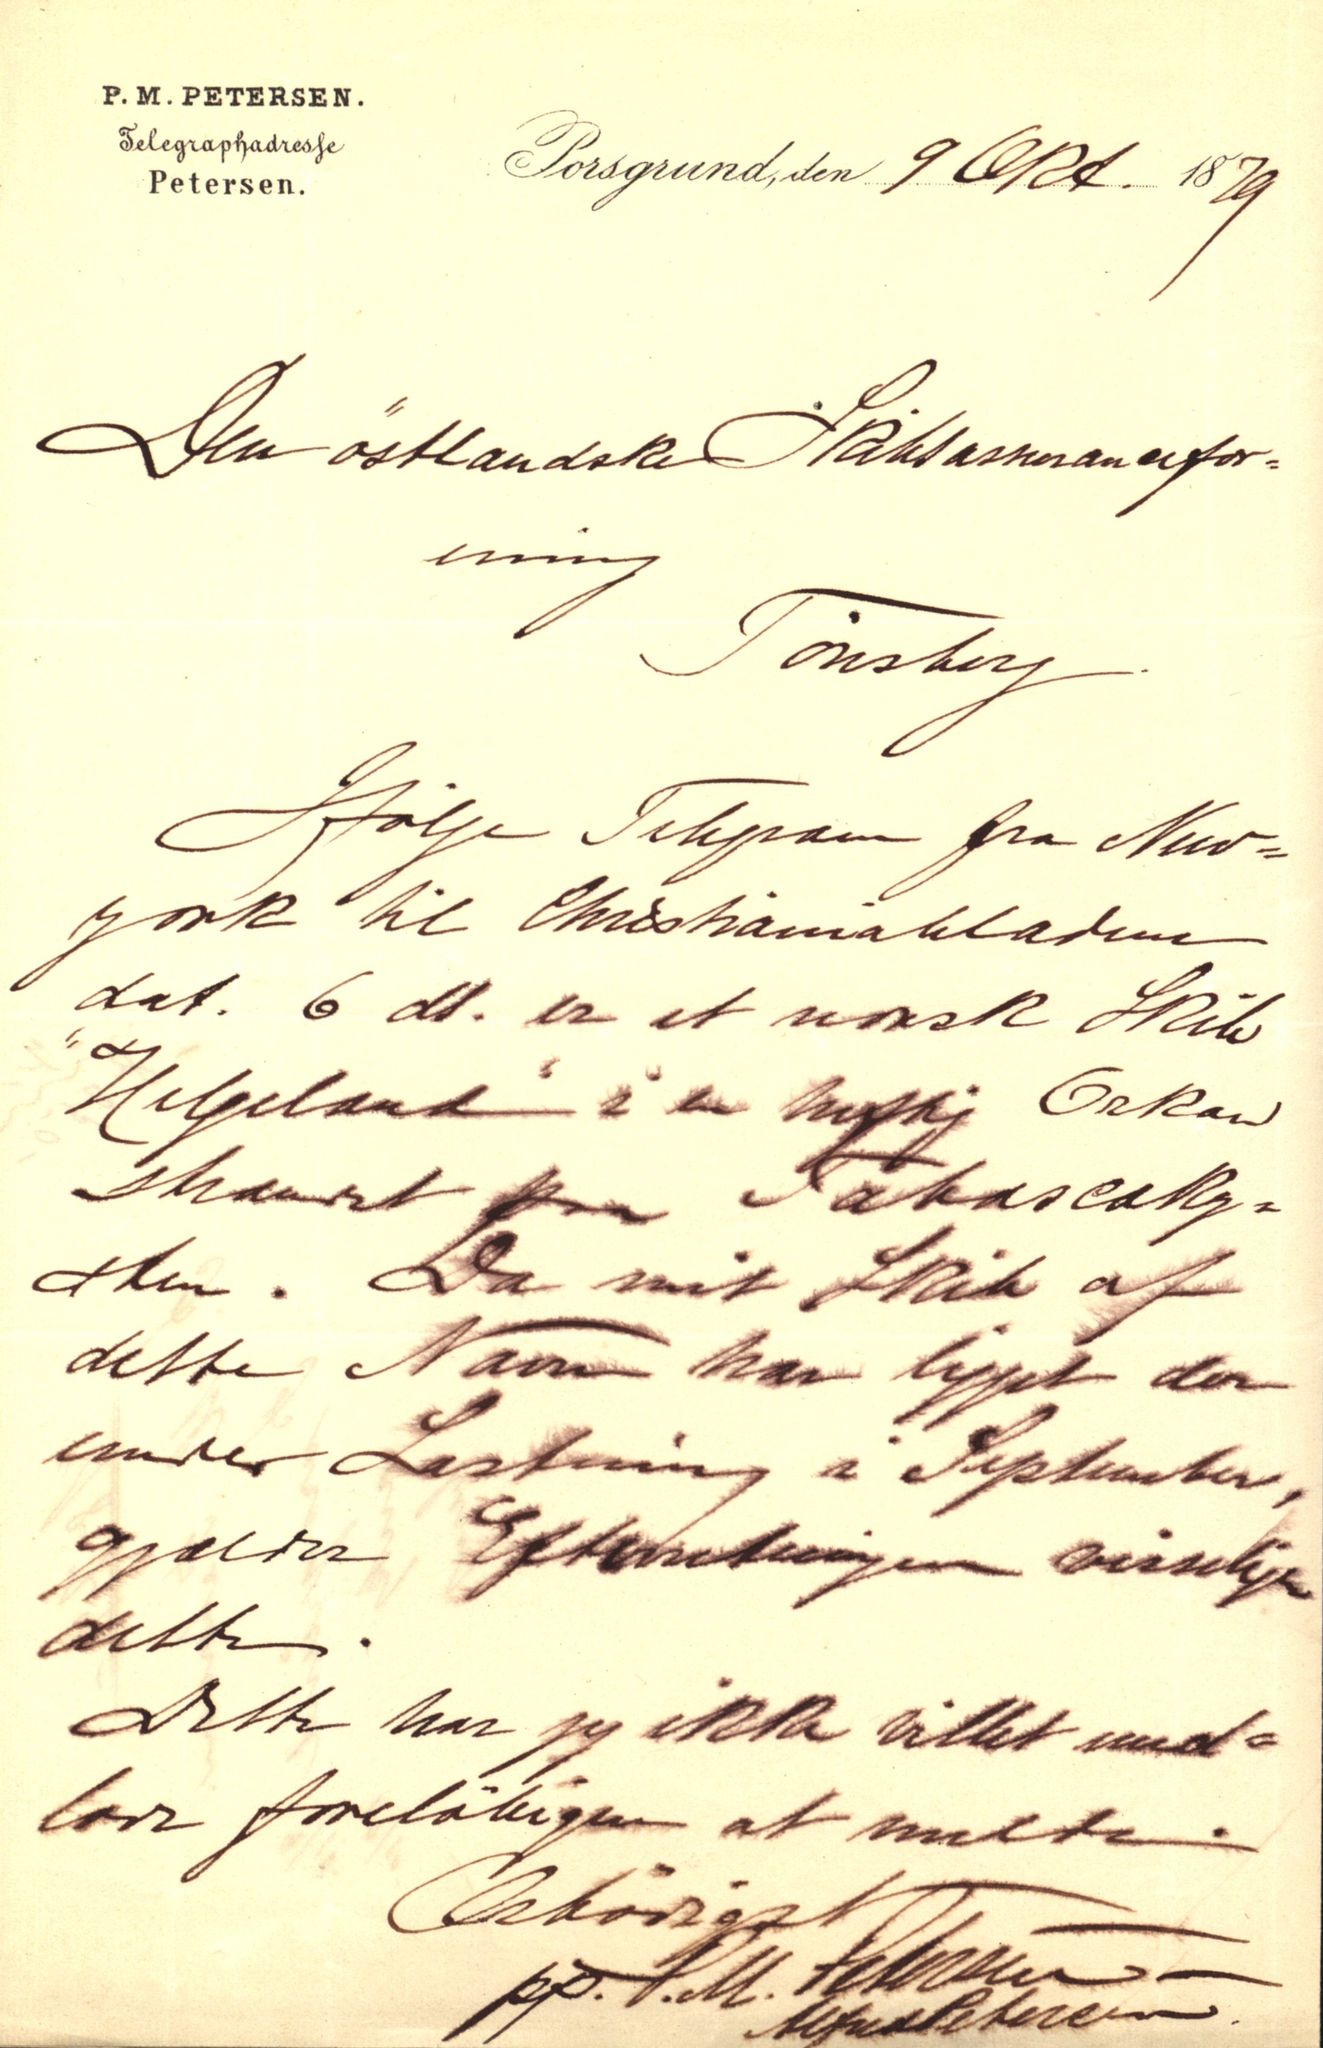 P. M. PETERSEN.
Telegraphadresse
Petersen.
Porsgrund, den 9 Okt. 1879
Den östlandske Skibsassurancefor=
ening
Tönsberg
Ifölge Telegram fra New=
york til Christianiabladene
dat. 6 ds. er et norsk Skib
"Helgeland" i en heftig Orkan
strandet paa Tabascoky=
sten. Da mit Skib af
dette Navn har ligget der
under Lastning i September,
gjælder Efterretningen visselig
dette.
Dette har jeg ikke villet und=
lade foreløbigen at melde.
Ærbödigst
pp. P. M. Petersen
Alfred Petersen.